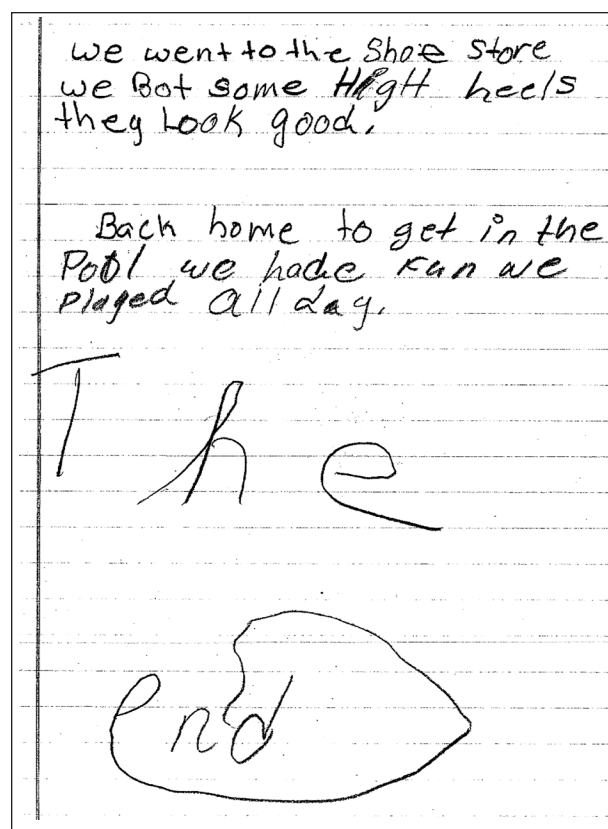 we went to the Shoe Store
we Bot some HigH heels
they Look good.
Back home to get in the
Pool we hade Fun we
played all day.
The
end